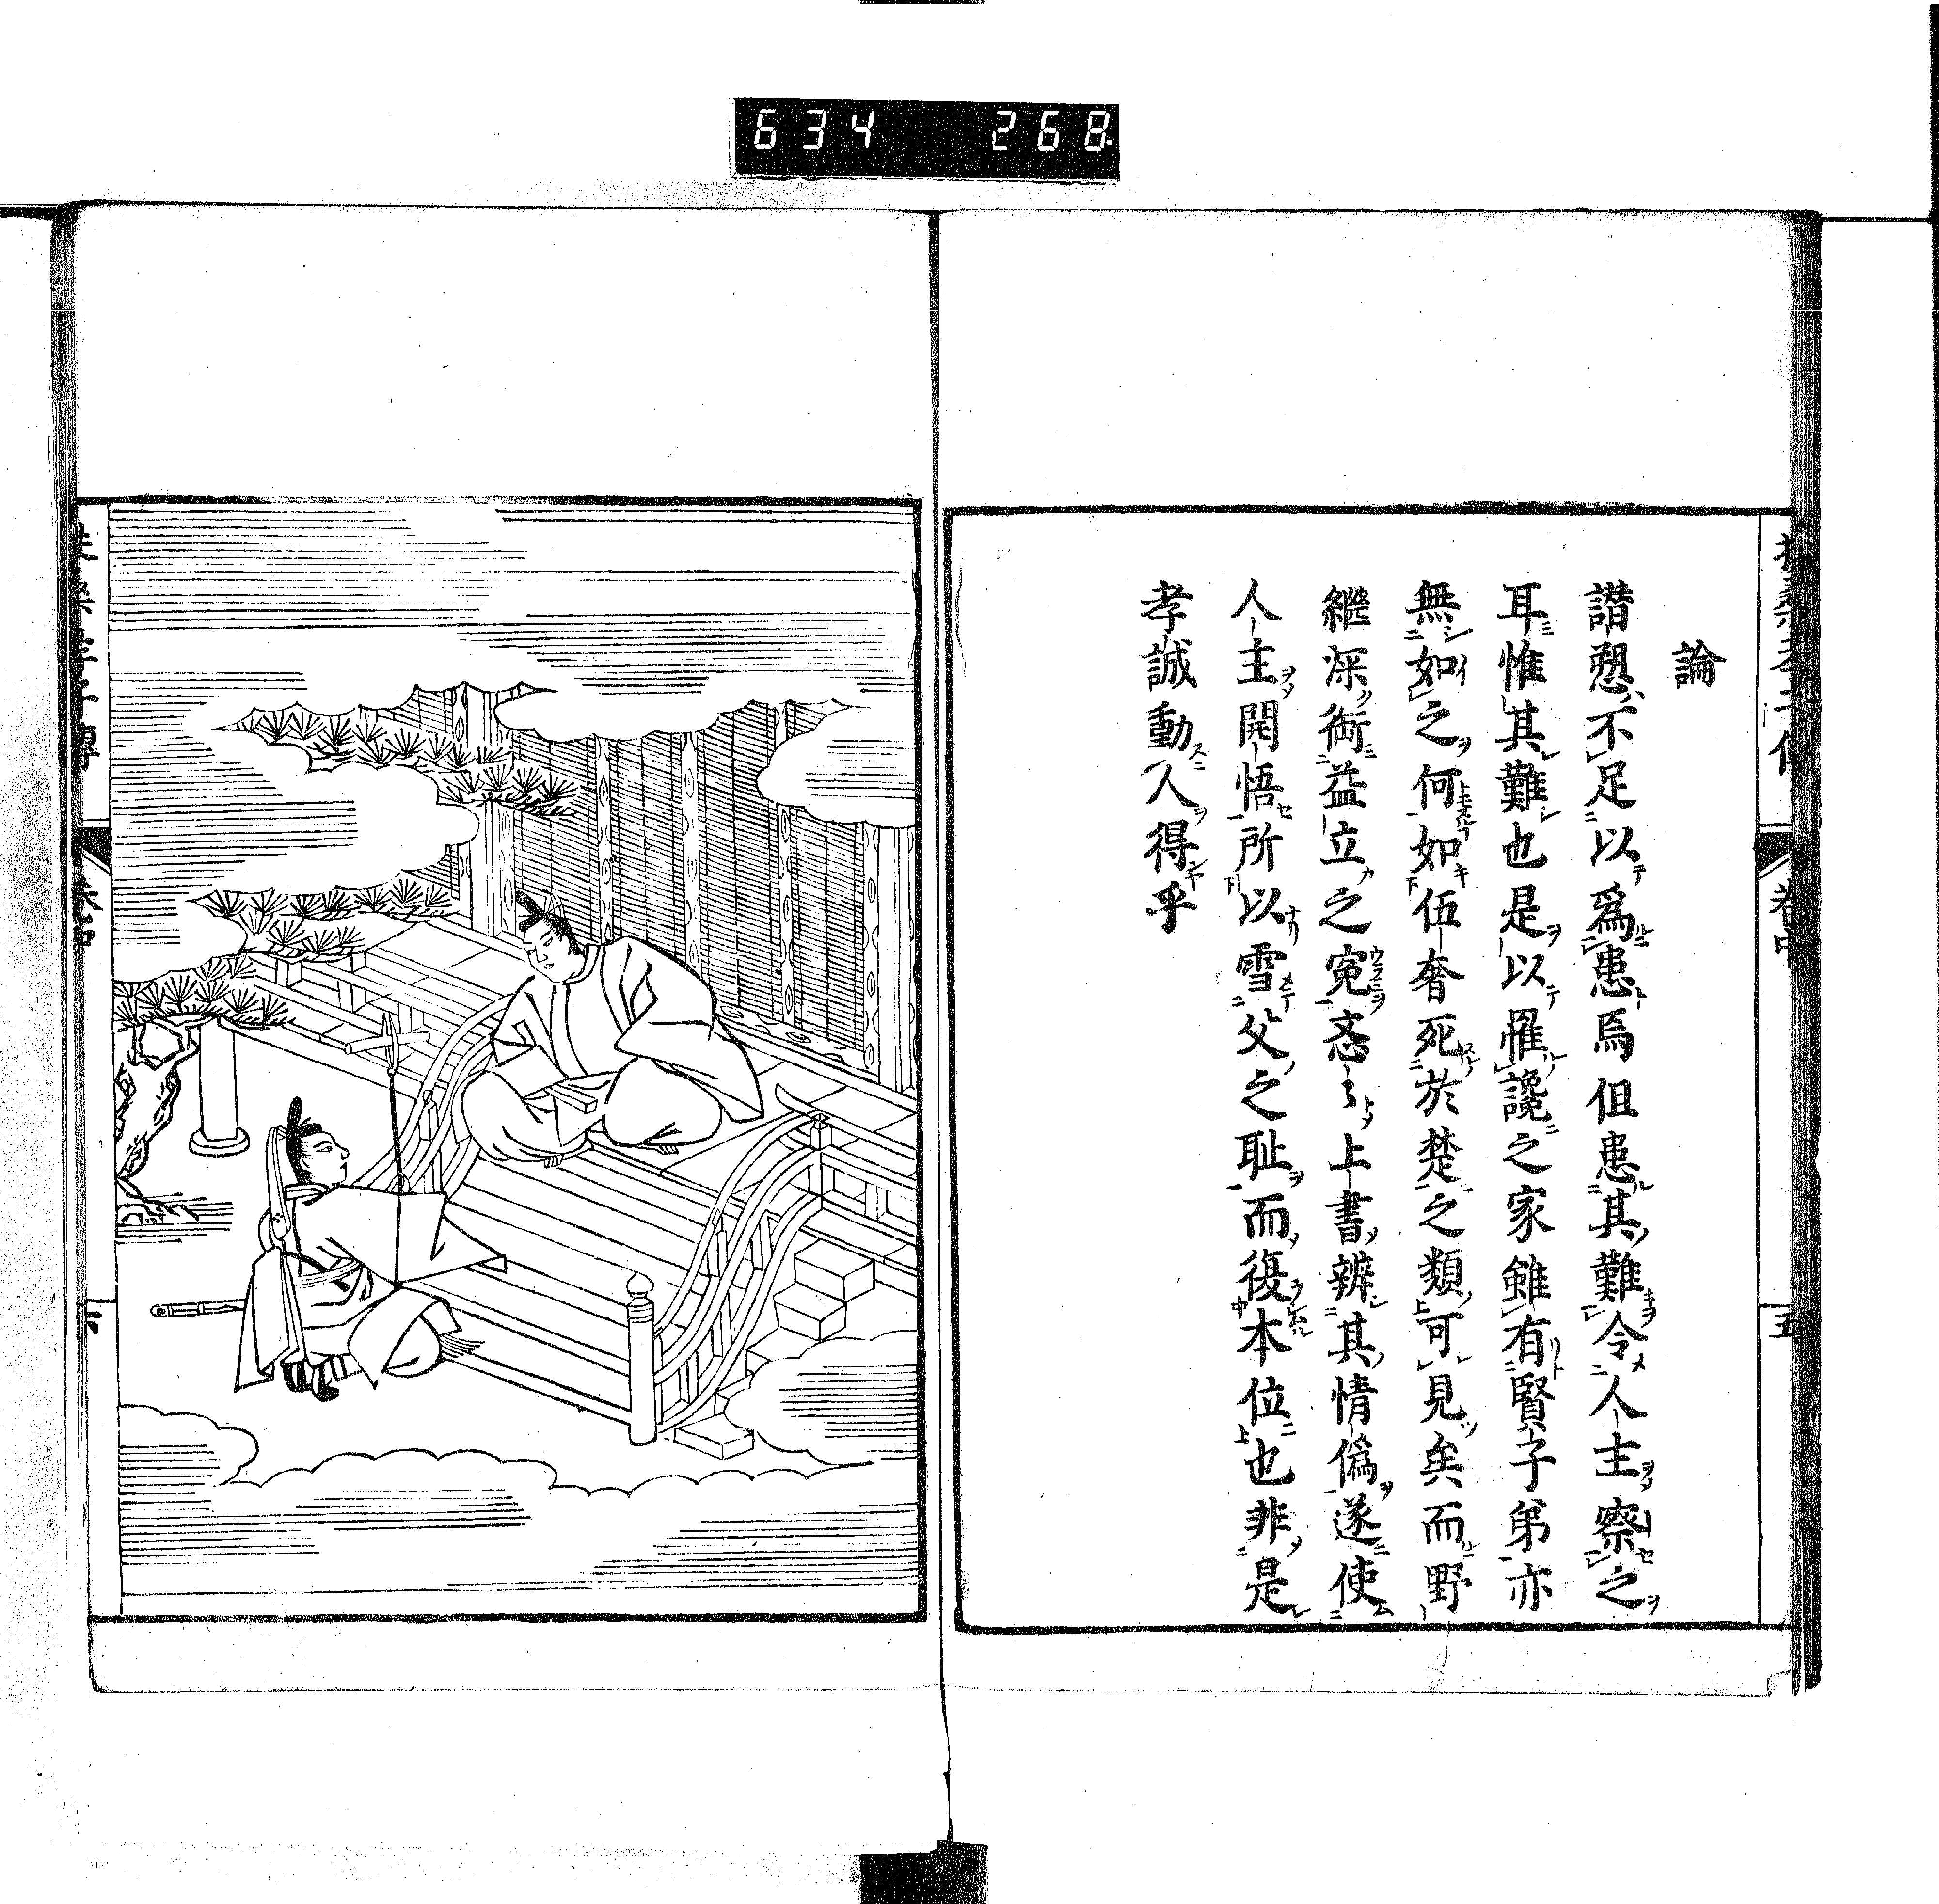 634 268
論
譖愬不足以爲患焉但患其難令人主察之
耳惟其難也是以罹讒之家雖有賢子弟亦
無如之何如伍奢死於楚之類可見矣而野
繼深銜益立之寃忞〻上書辨其情僞遂使
人主開悟所以雪父之耻而復本位也非是
孝誠動人得乎
卷中
五